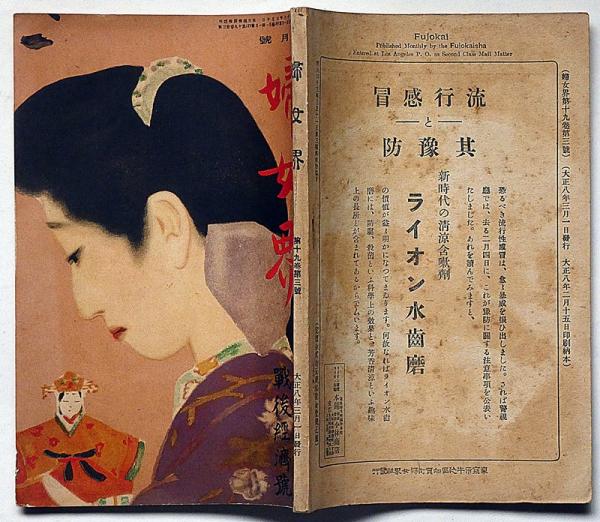 月號
婦女界
戰後經濟號
大正八年三月一日發行
婦女界
第十九卷第三號
Fujokai
Published Monthly by the Fujokaisha
Entered at Los Angeles P. O. as Second Class Mail Matter
流行感冒
と
其豫防
新時代の清涼含嗽劑
ライオン水齒磨
恐るべき流行性感冒は、愈々暴威を振ひ出しました。されば警視
廳では、去る二月四日に、これが豫防に關する注意事項を公表い
たしました。あれを讀んでみますと、
の價値が益々明かになつてまゐります。何故なればライオン水齒
磨には、防腐、殺菌といふ科學上の效果と、芳香清涼といふ趣味
上の長所とが含まれてあるからでムいます。
(婦女界第十九卷第三號)
(大正八年三月一日發行
大正八年二月十五日印刷納本)